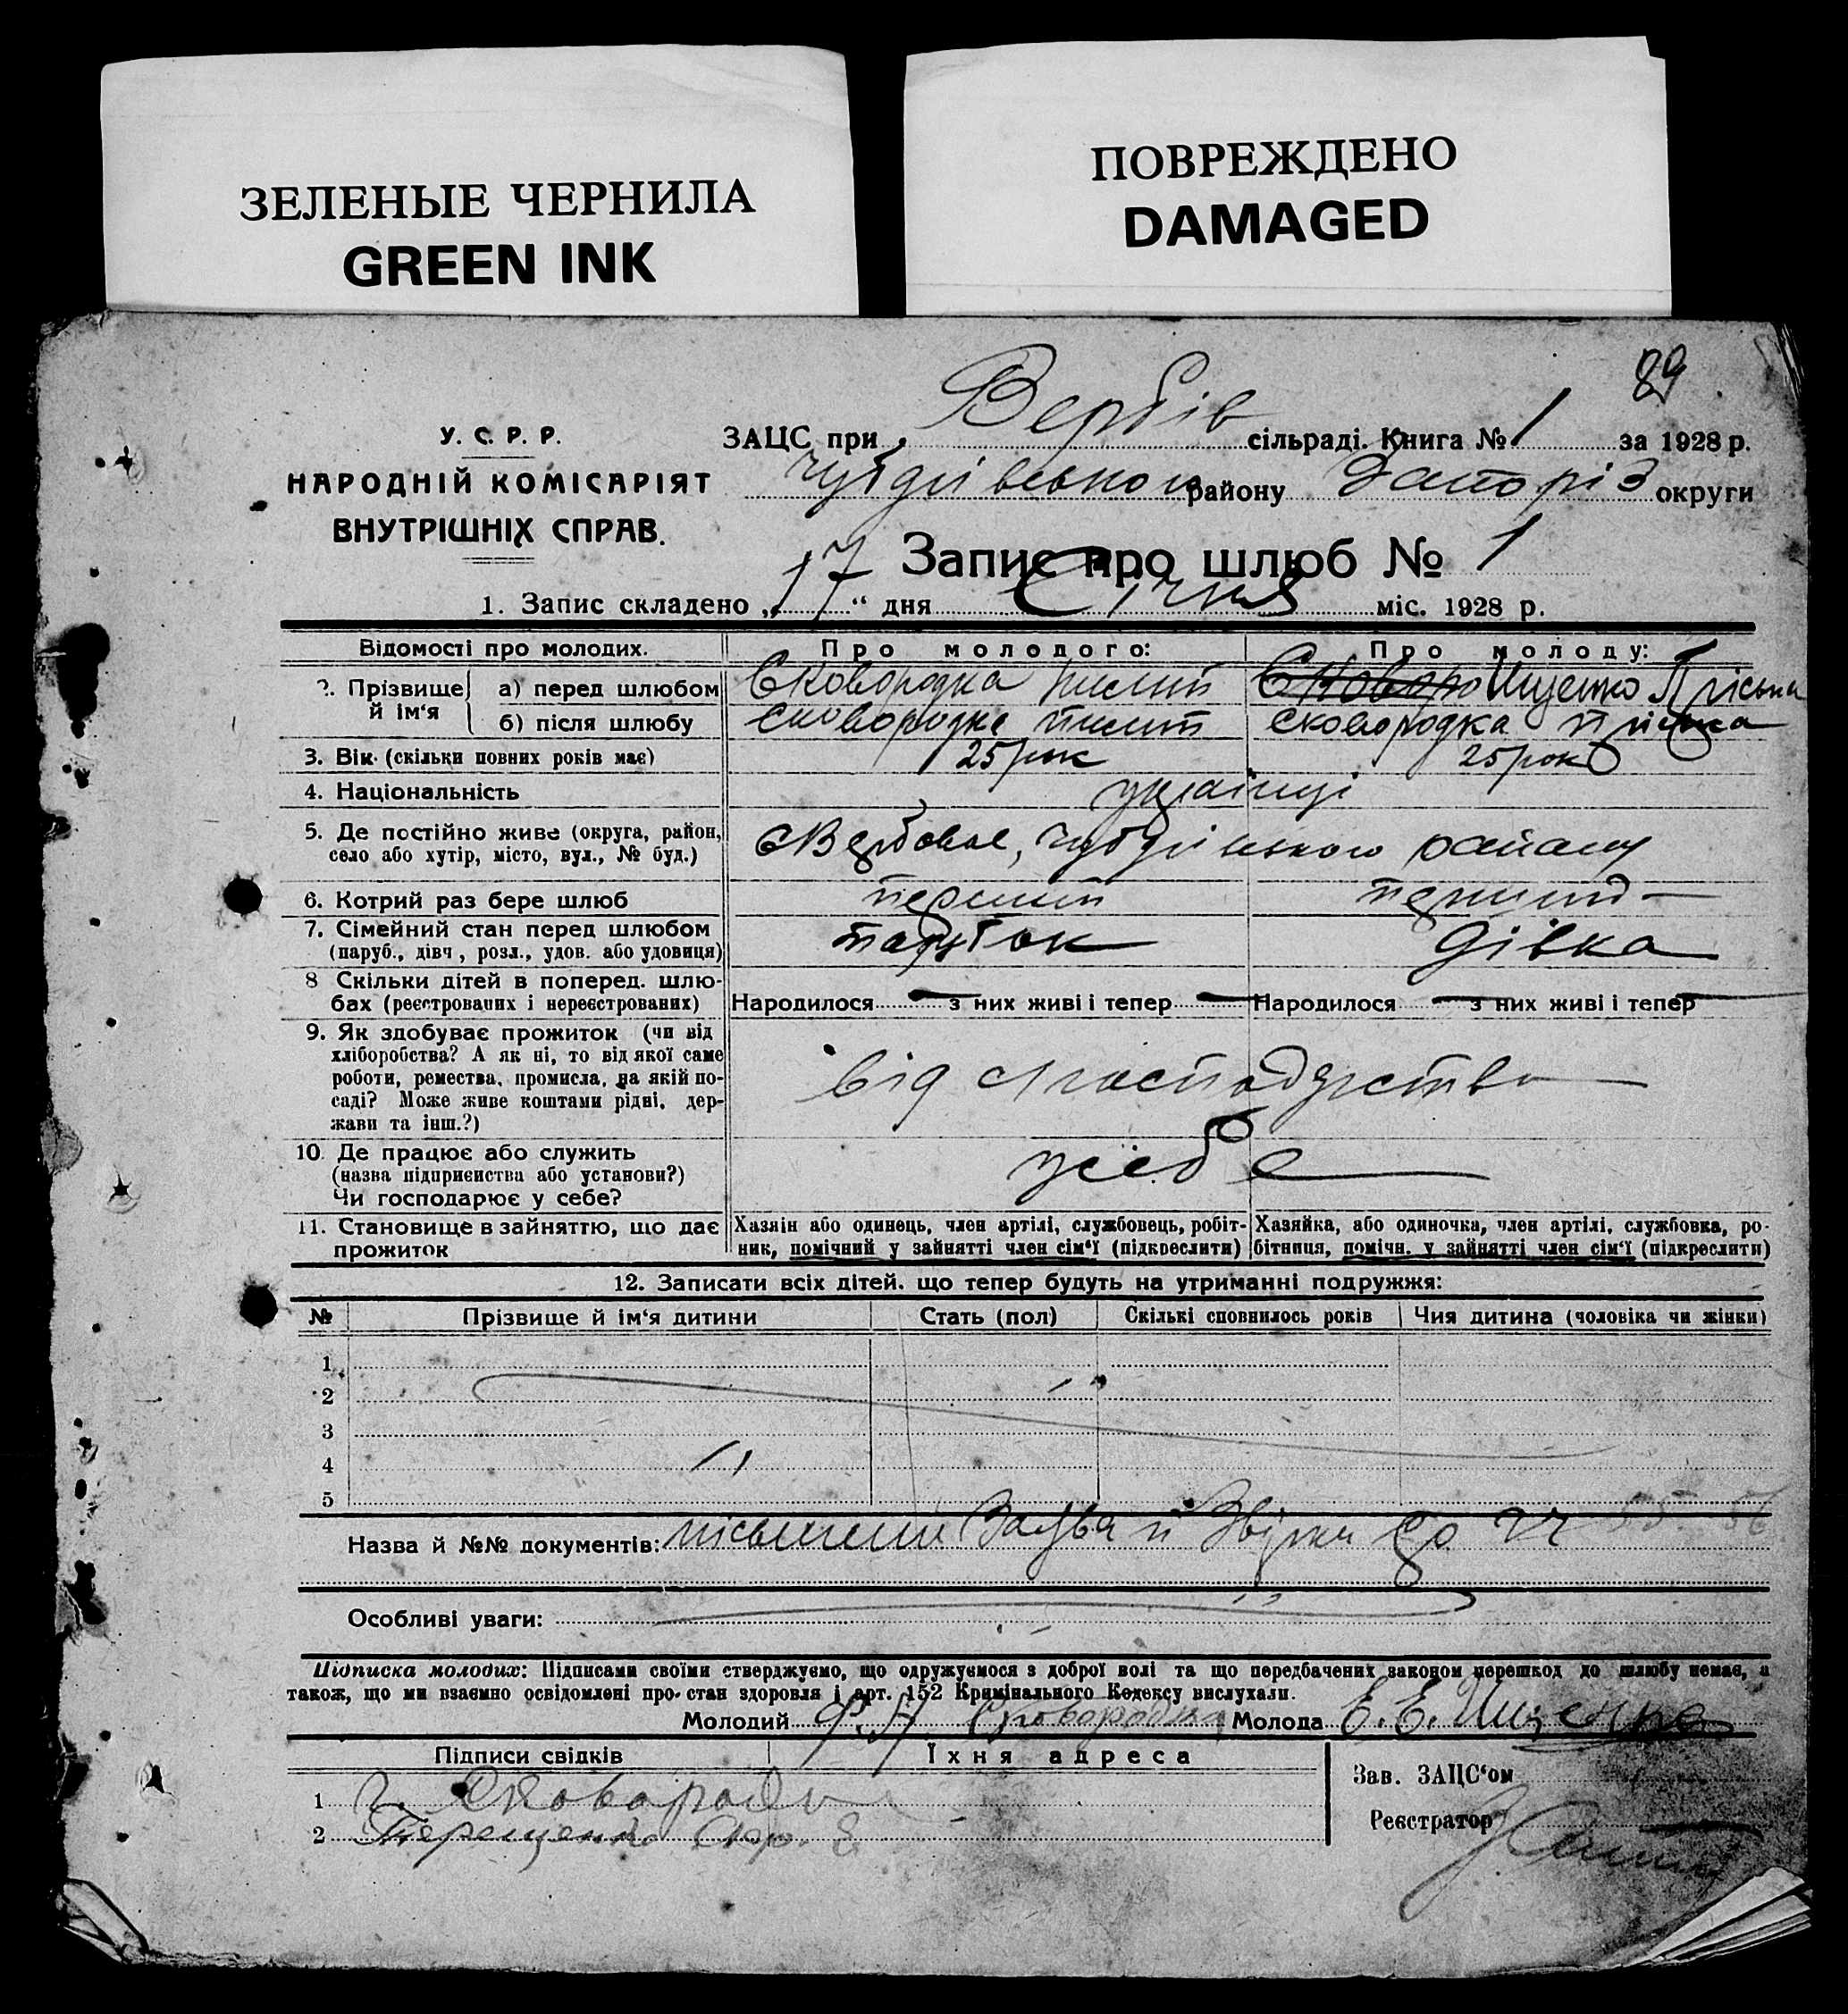 ЗЕЛЕНЫЕ ЧЕРНИЛА
GREEN INK
ПОВРЕЖДЕНО
DAMAGED
89
У. С. Р. Р.
НАРОДНІЙ КОМІСАРІЯТ
ВНУТРІШНІХ СПРАВ.
ЗАЦС при Вербів сільраді. Книга № 1 за 1928 р.
Чубарівського району Запоріз округи
Запис про шлюб № 1
1. Запис складено „17“ дня Січня міс. 1928 р.
Відомості про молодих. Про молодого: Про молоду:
2. Прізвище й ім'я
а) перед шлюбом Сковородка Пилип Сковоро Ищенко Пріська
б) після шлюбу Сковородка Пилип Сковородка Пріська
3. Вік (скільки повних років має) 25 рок 25 рок
4. Національність українці
5. Де постійно живе (округа, район,
село або хутір, місто, вул., № буд.) с Вербове, Чубарівського району
6. Котрий раз бере шлюб перший перший
7. Сімейний стан перед шлюбом
(паруб., дівч., розл., удов. або удовиця) парубок дівка
8 Скільки дітей в поперед. шлю-
бах (реєстрованих і нереєстрованих) Народилося — з них живі і тепер — Народилося — з них живі і тепер —
9. Як здобуває прожиток (чи від
хліборобства? А як ні, то від якої саме
роботи, ремества, промисла, на якій по-
саді? Може живе коштами рідні, дер-
жави та інш.?)
від
10. Де працює або служить
(назва підприємства або установи?)
Чи господарює у себе?
у себе
11. Становище в зайняттю, що дає
прожиток
Хазяін або одинець, член артілі, службовець, робіт-
ник, помічний у зайнятті член сім'ї (підкреслити)
Хазяйка, або одиночка, член артілі, службовка, ро-
бітниця, помічн. у зайнятті член сім'ї (підкреслити)
12. Записати всіх дітей. що тепер будуть на утриманні подружжя:
№ Прізвище й ім'я дитини Стать (пол) Скількі сповнилось років Чия дитина (чоловіка чи жінки)
1
2
3
4
5
Назва й №№ документів: до
Особливі уваги:
Підписка молодих: Підписами своїми стверджуємо, що одружуємося з доброї волі та що передбачених законом перешкод до шлюбу немає, а
також, що ми взаємно освідомлені про стан здоровля і арт. 152 Кримінального Кодексу вислухали.
Молодий Сковородка Молода Е. Е. Ищенко
Підписи свідків Їхня адреса
1 Сковарадка
2 Терещенко
Зав. ЗАЦС'ом
Реєстратор